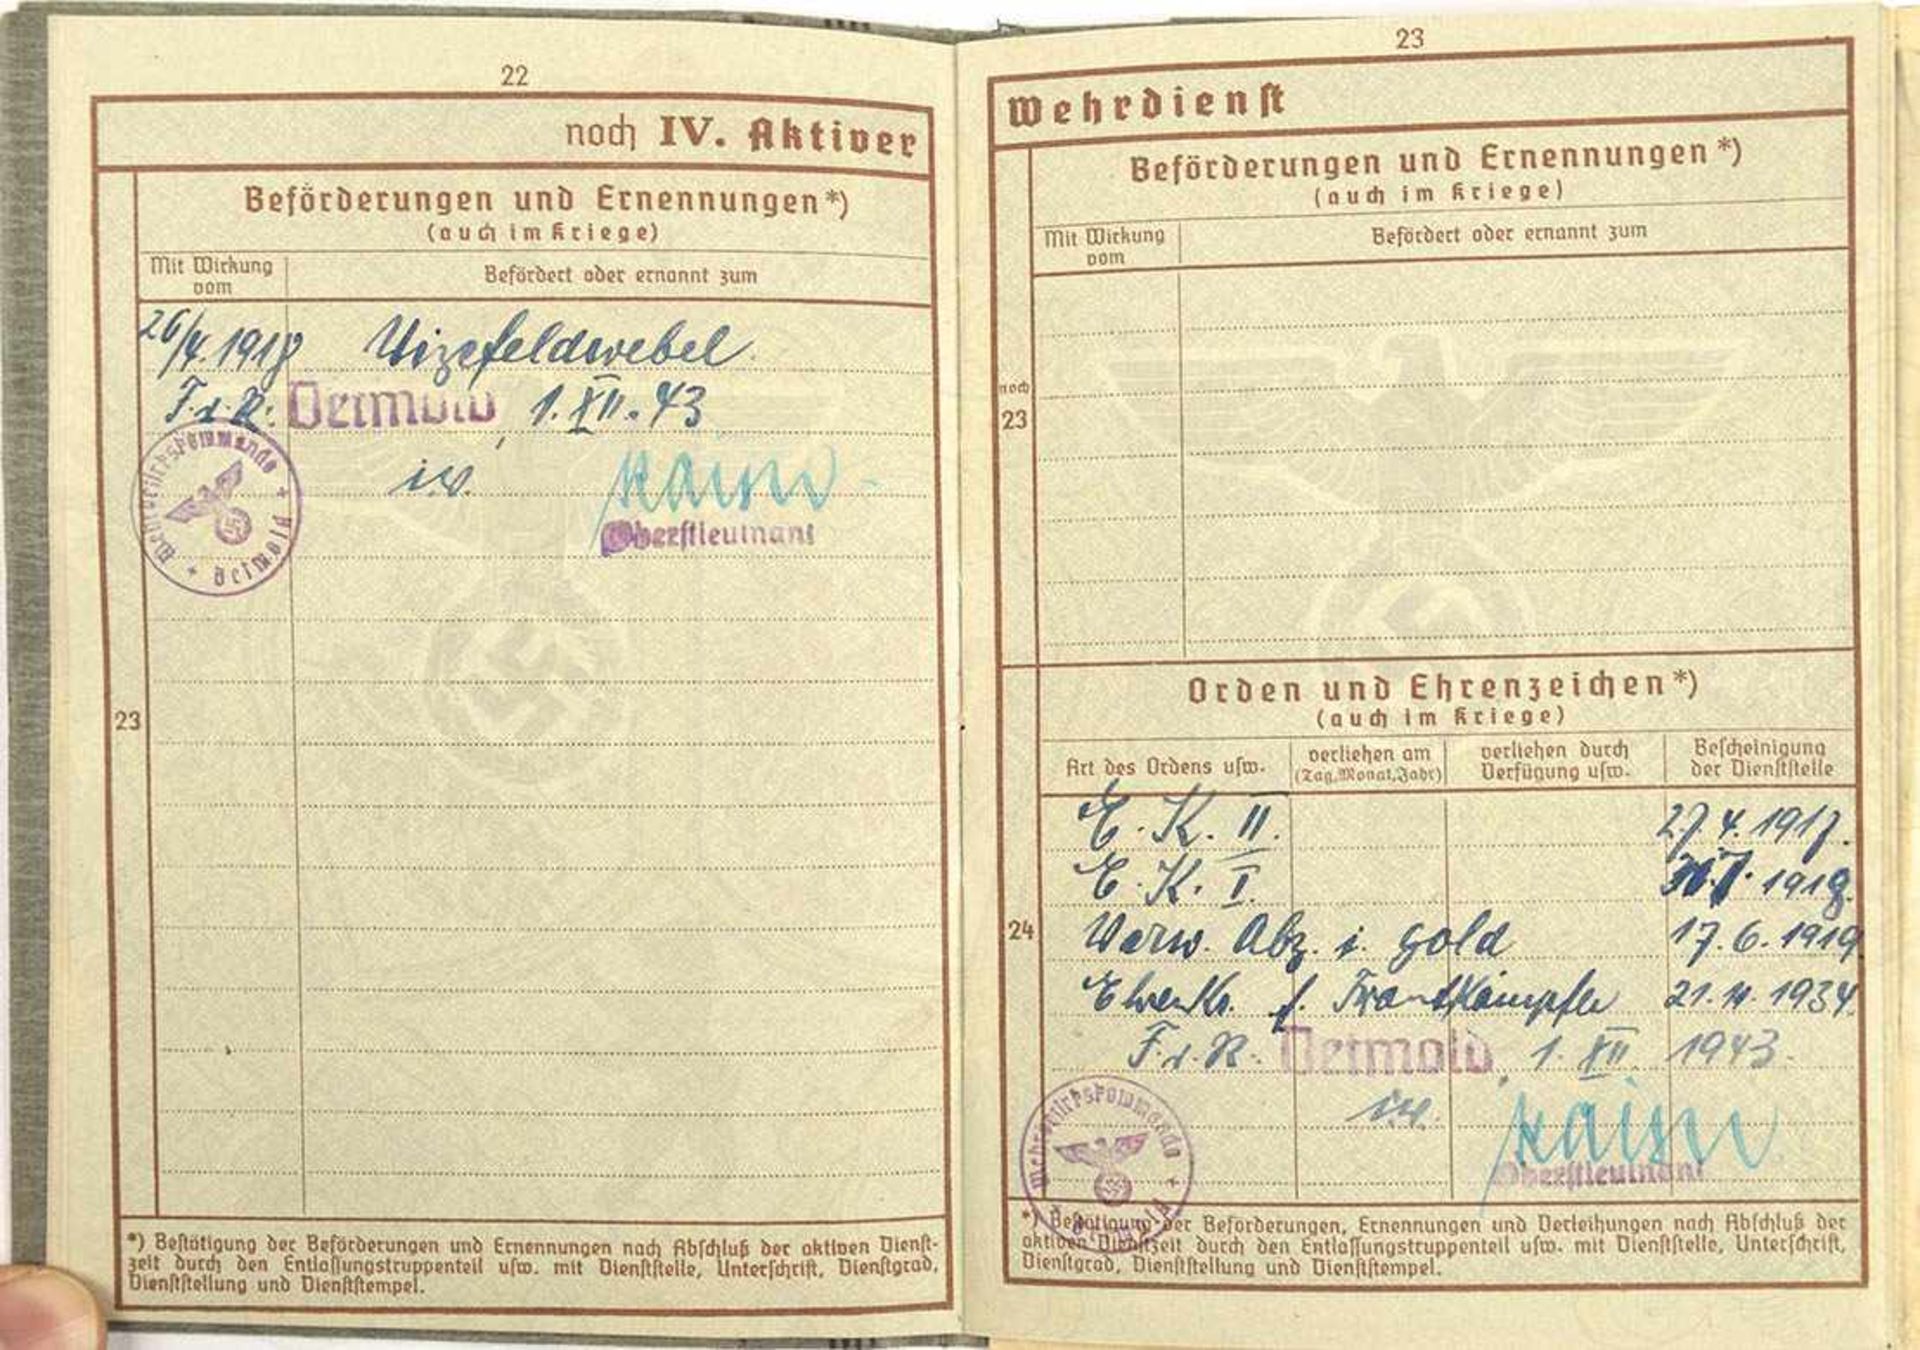 22
noch IV. Aktiver
Beförderungen und Ernennungen*)
(auch im Kriege)
Mit Wirkung vom
Befördert oder ernannt zum
26/4. 1918 Vizefeldwebel.
F.d.R: Detmold, 1. XII. 43
i.V.
Oberstleutnant
Wehrbezirkskommando
Detmold
23
*) Bestätigung der Beförderungen und Ernennungen nach Abschluß der aktiven Dienst-
zeit durch den Entlassungstruppenteil usw. mit Dienststelle, Unterschrift, Dienstgrad,
Dienststellung und Dienststempel.
23
Wehrdienst
Beförderungen und Ernennungen*)
(auch im Kriege)
Mit Wirkung vom
Befördert oder ernannt zum
noch
23
Orden und Ehrenzeichen*)
(auch im Kriege)
Art des Ordens usw.
verliehen am
(Tag, Monat, Jahr)
verliehen durch
Verfügung usw.
Bescheinigung
der Dienststelle
E. K. II. 27. 4. 1917.
E. K. I. 1918.
24
Verw. Abz. i. Gold 17. 6. 1919
EhrenKr. f. Frontkämpfer 21. 11. 1934.
F.d.R. Detmold, 1. XII 1943.
i.V.
Oberstleutnant
Wehrbezirkskommando
Detmold
*) Bestätigung der Beförderungen, Ernennungen und Verleihungen nach Abschluß der
aktiven Dienstzeit durch den Entlassungstruppenteil usw. mit Dienststelle, Unterschrift,
Dienstgrad, Dienststellung und Dienststempel.